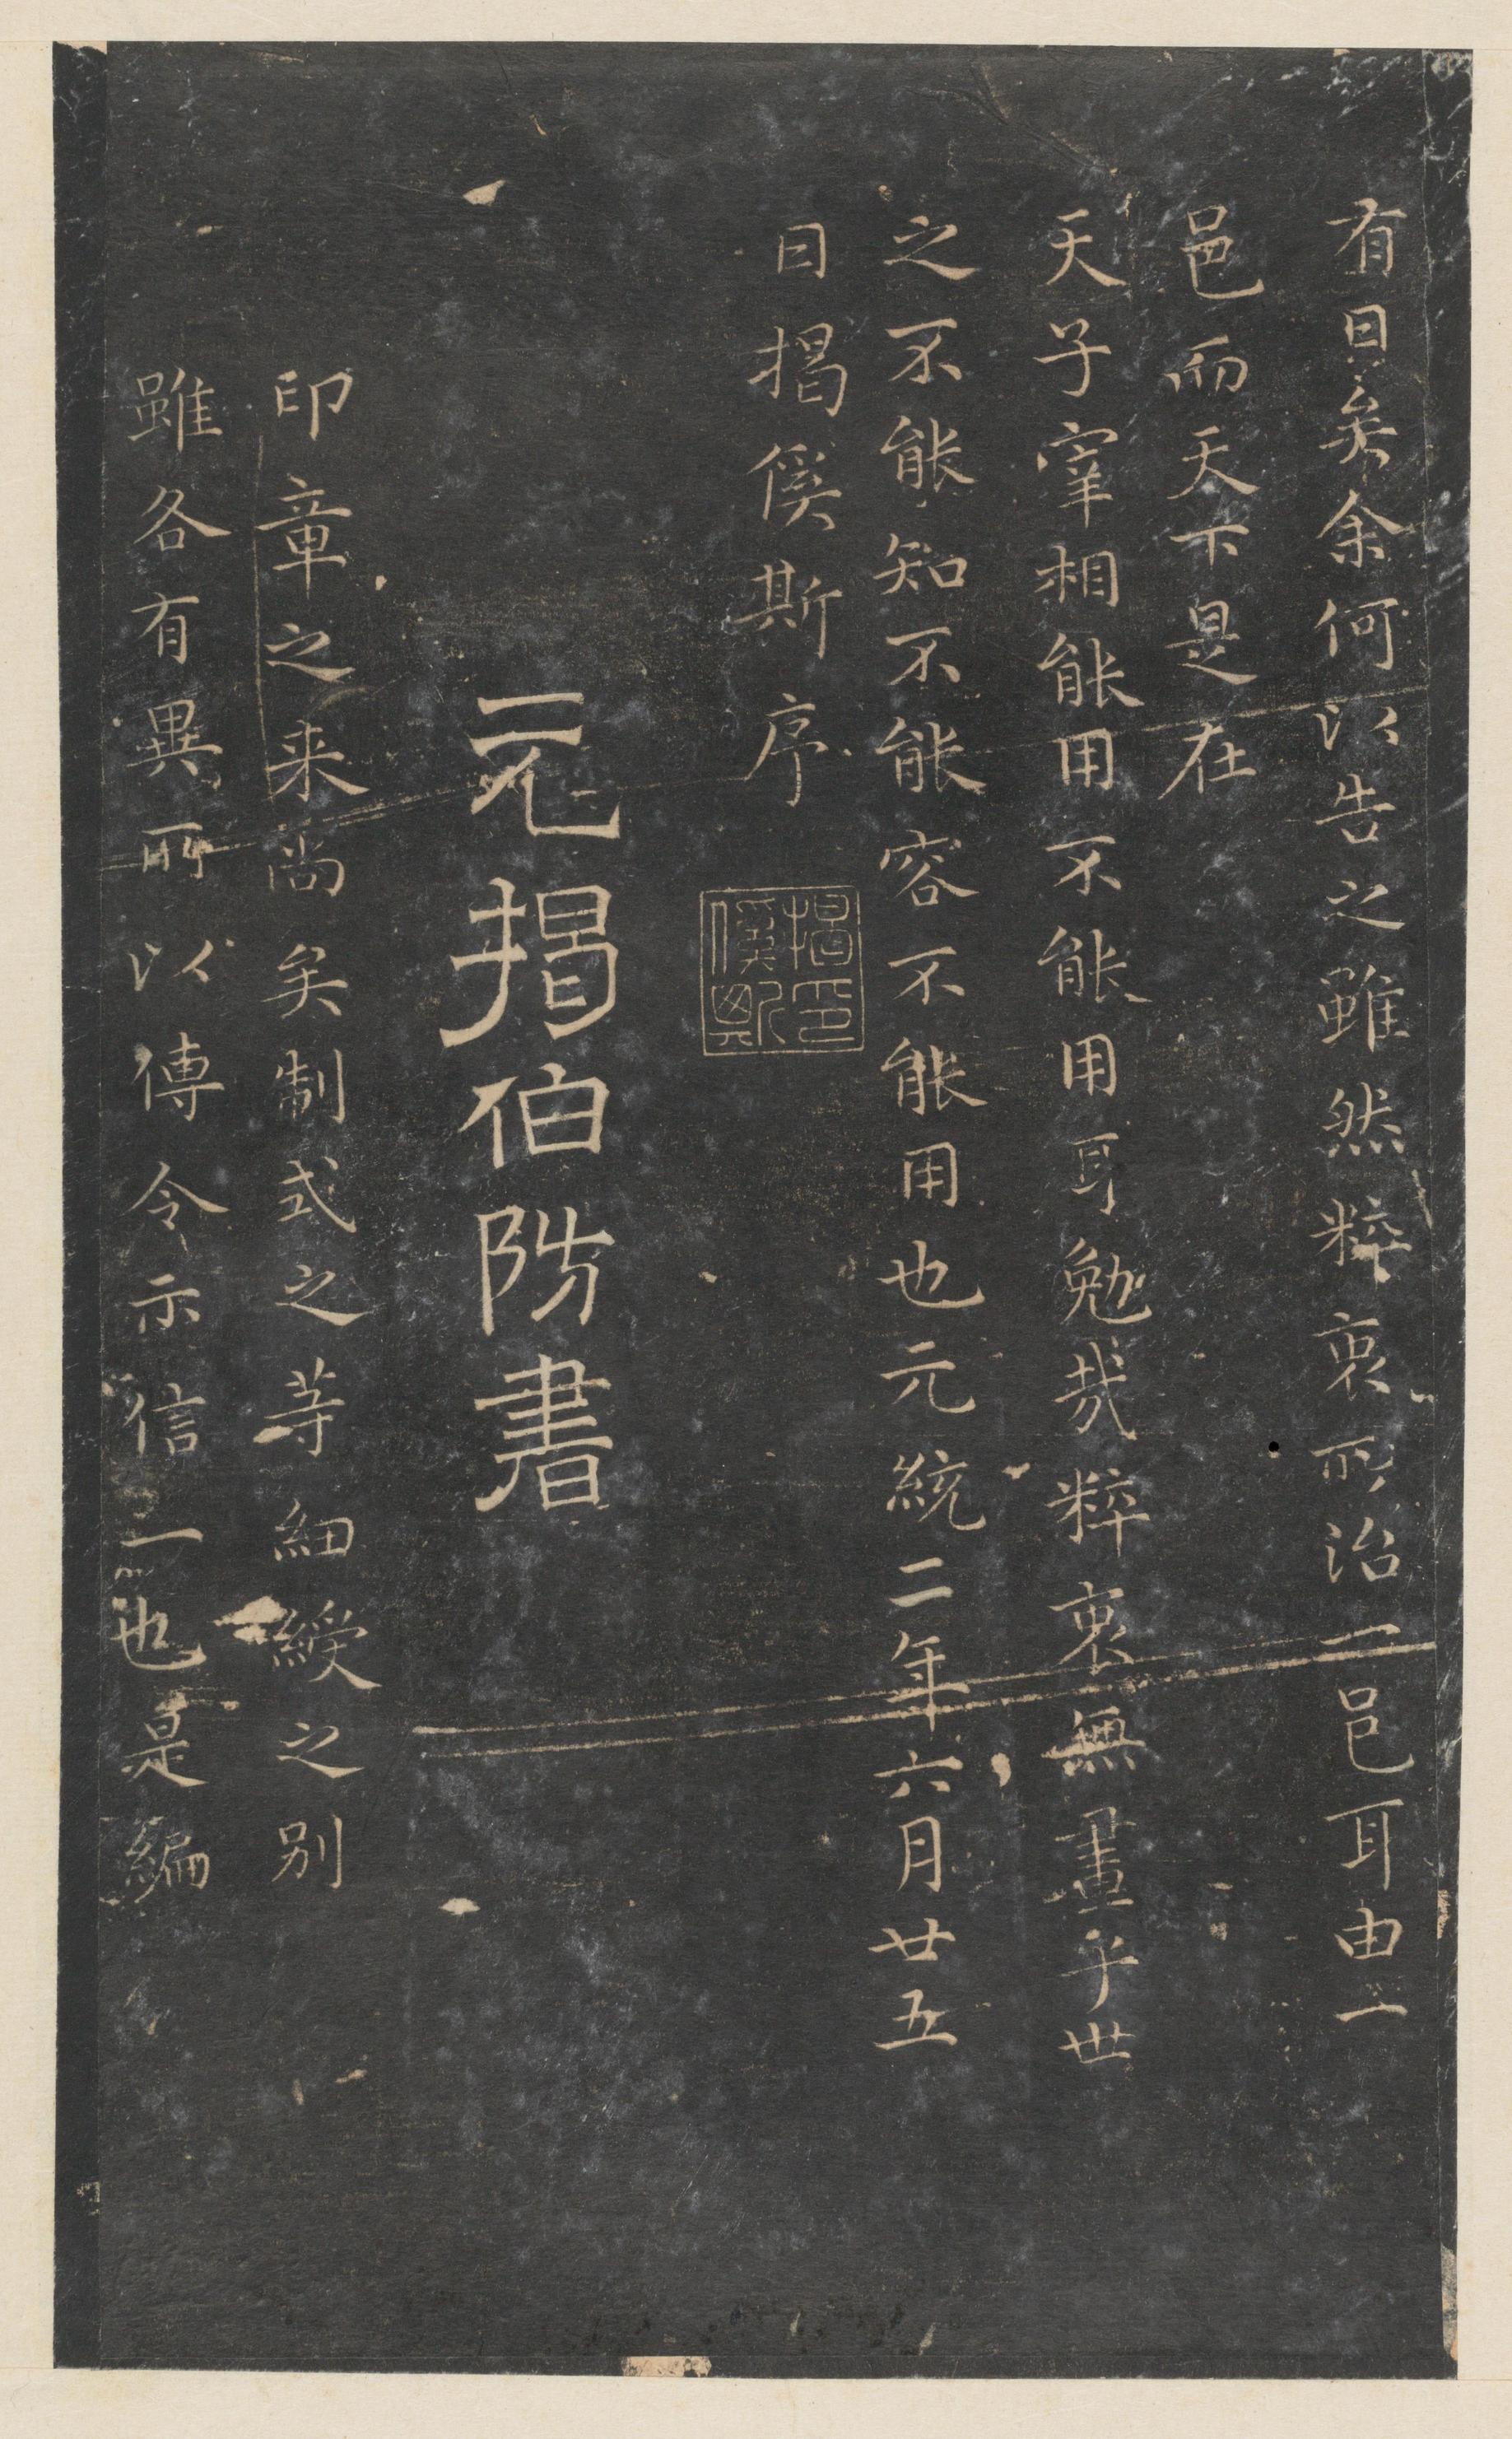 有日矣余何以告之雖然粹衷所治一邑耳由一
邑而天下是在
天子宰相能用不能用耳勉哉粹衷無晝乎世
之不能知不能容不能用也元統二年六月廿五
日揭傒斯序
揭傒斯印
元揭伯防書
印章之来尚矣制式之等細綬之別
雖各有異所以傳令示信一也是編